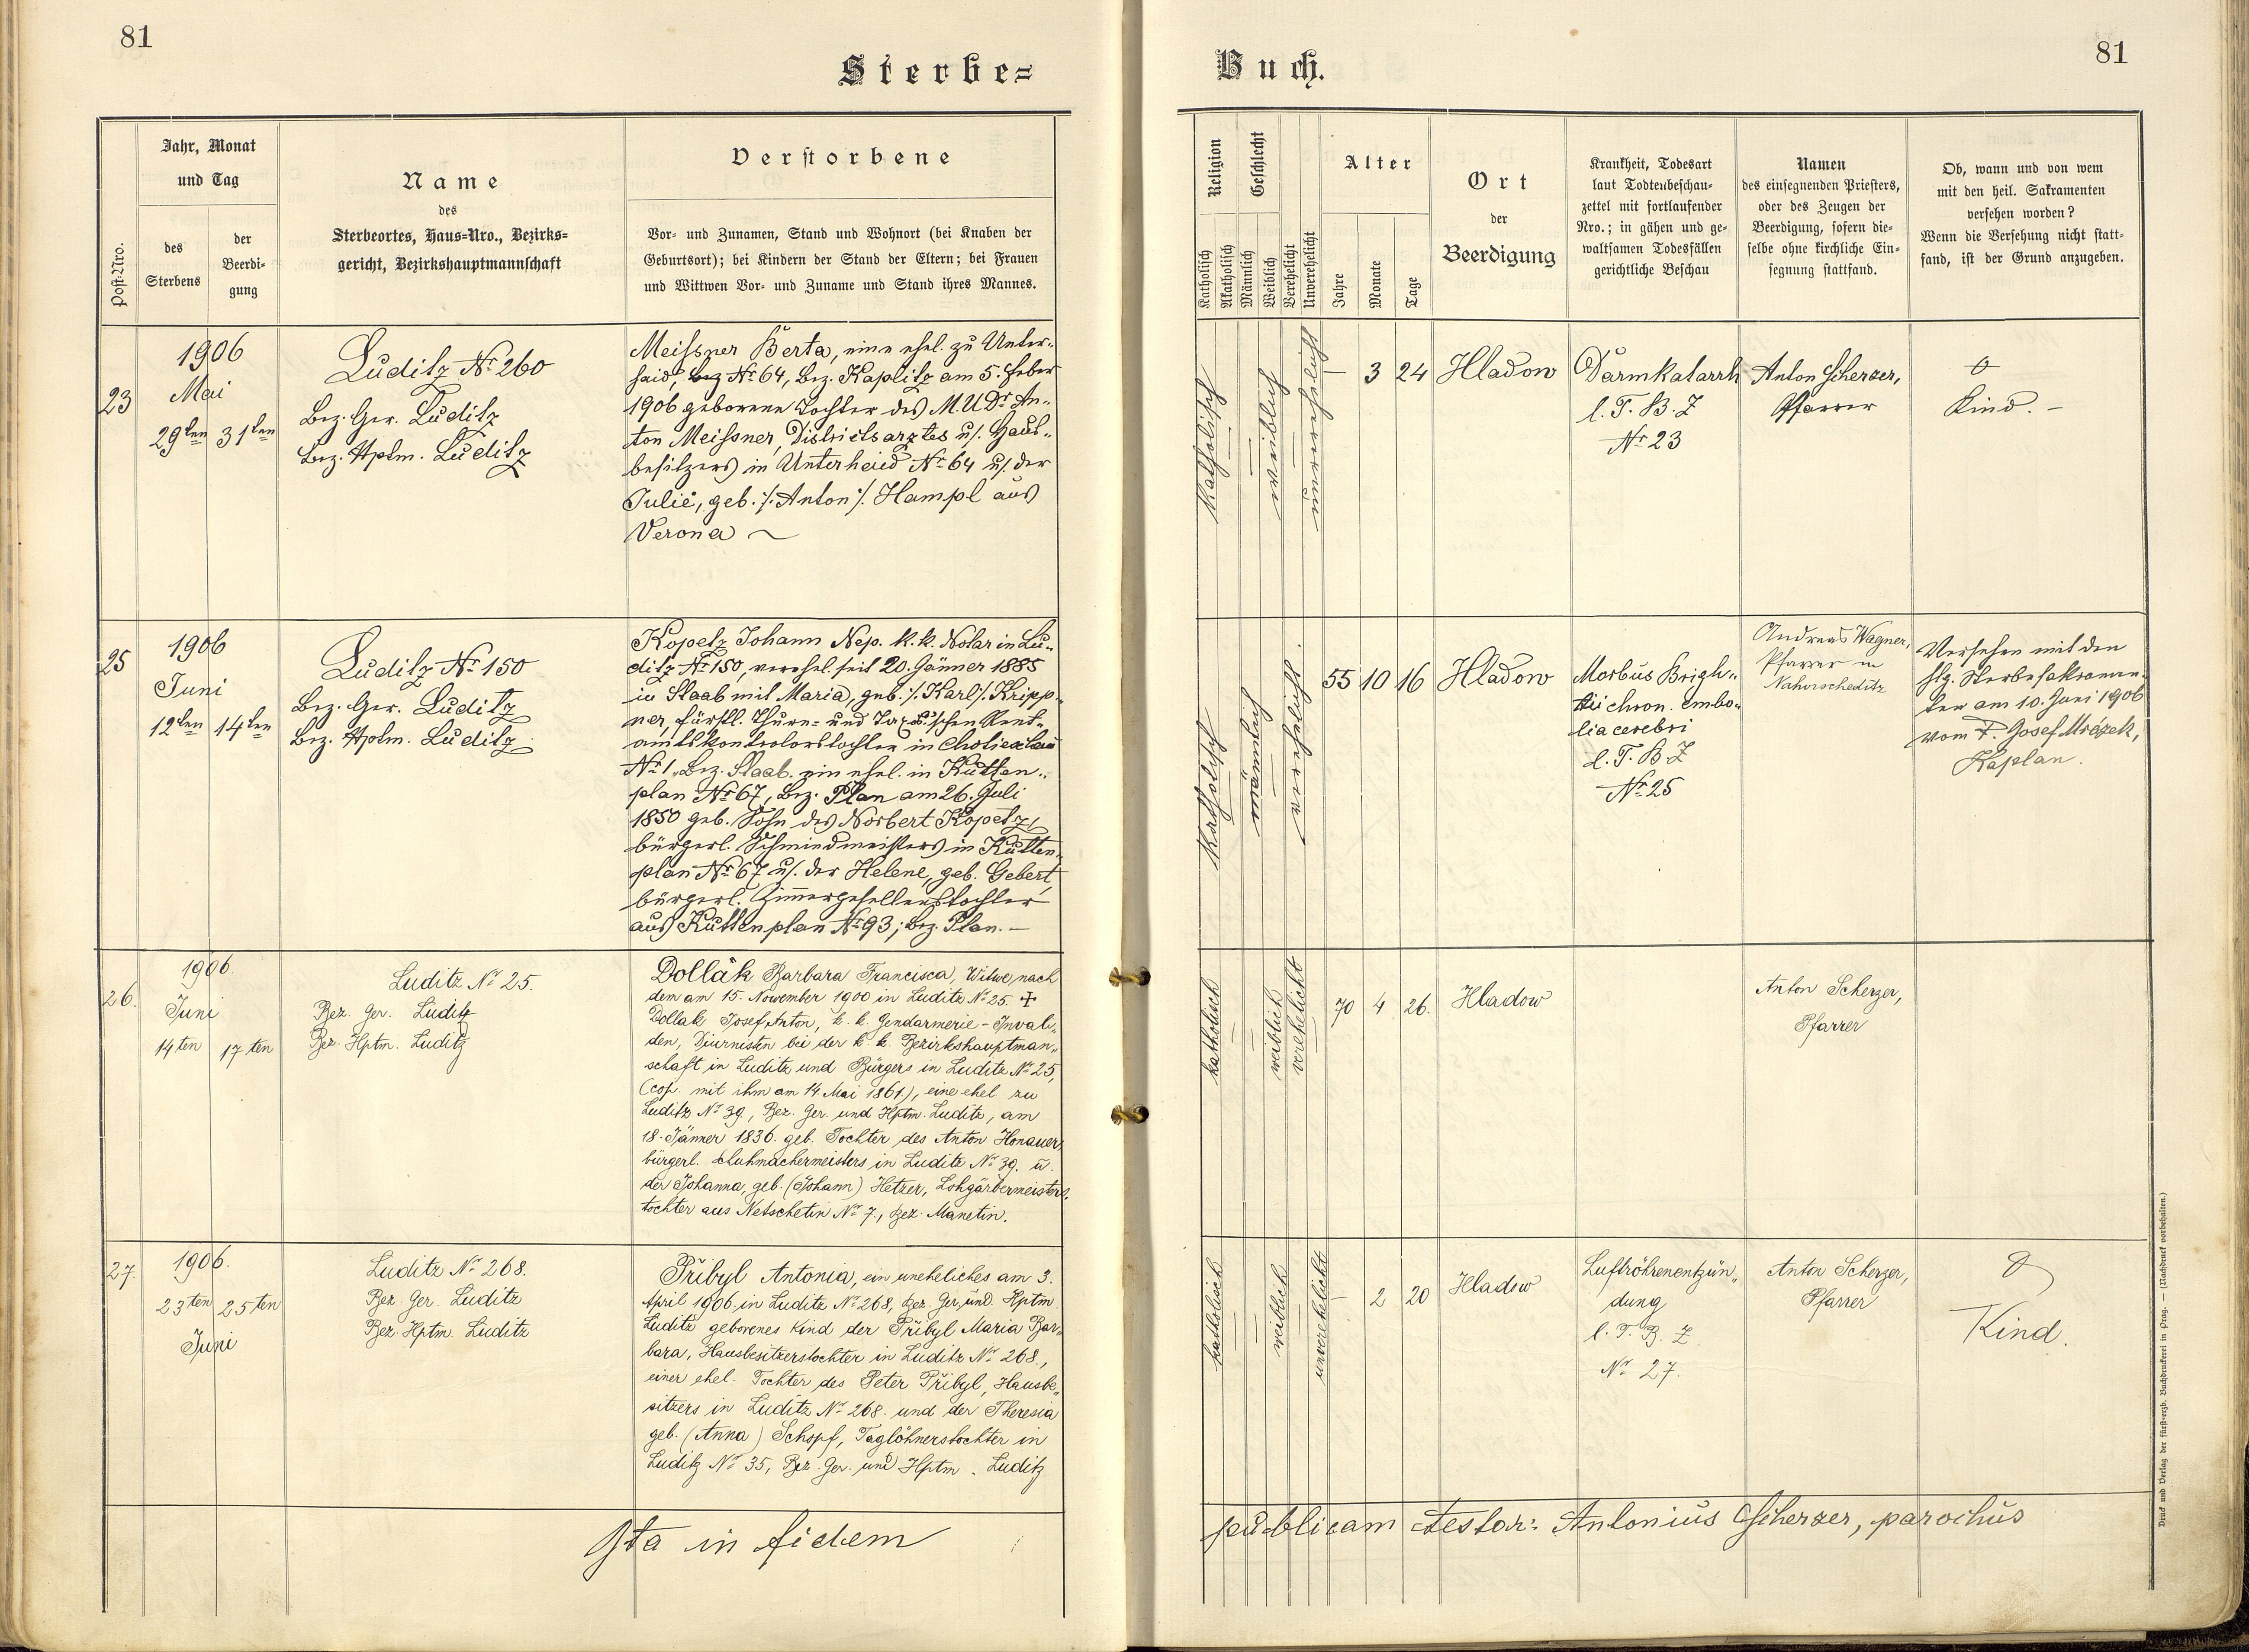 81
Sterbe=
Jahr, Monat
und Tag
Post-Nro.
des
Sterbens
der
Beerdi-
gung
Name
des
Sterbeortes, Haus=Nro., Bezirks=
gericht, Bezirkshauptmannschaft
Verstorbene
Vor- und Zunamen, Stand und Wohnort (bei Knaben der
Geburtsort); bei Kindern der Stand der Eltern; bei Frauen
und Wittwen Vor- und Zuname und Stand ihres Mannes.
23
1906
Mai
29ten 31ten
Luditz Nr 260
Bez. Ger. Luditz
Bez. Hptm. Luditz
Meissner Berta, eine ehel. zu Unter-
haid, Nr 64, Bez. Kaplitz am 5. Feber
1906 geborene Tochter des M.U.Dr An-
ton Meissner, Districtsarztes u/. Haus-
besitzers in Unterheid Nr 64 u/. der
Julie, geb. /: Anton :/ Hampl aus
Verona
25
1906
Juni
12ten 14ten
Luditz Nr 150
Bez. Ger. Luditz
Bez. Hptm. Luditz
Kopetz Johann Nep. k. k. Notar in Lu-
ditz Nr 150, verehel. seit 20. Jänner 1885
in Staab mit Maria, geb. /: Karl :/ Kripp-
ner, fürstl. Thurn- und Taxis'schen Rent-
amtskontrolorstochter in
Nr 1, Bez. Staab. ein ehel. in Kutten-
plan Nr 67, Bez. Plan am 26. Juli
1850 geb. Sohn des Norbert Kopetz,
bürgerl. Schmiedmeisters in Kutten-
plan Nr 67 u/. der Helene, geb. Gebert,
bürgerl. Zimmergesellenstochter
aus Kuttenplan Nr 93; Bez. Plan. —
26.
1906.
Juni
14ten 17ten
Luditz Nr 25.
Bez. Ger. Luditz
Bez. Hptm. Luditz
Dollak Barbara Francisca, Witwe nach
dem am 15. November 1900 in Luditz Nr 25. ✝
Dollak Josef Anton, k. k. Gendarmerie-Invali-
den, Diurnisten bei der k. k. Bezirkshauptman-
schaft in Luditz und Bürgers in Luditz Nr 25,
(cop. mit ihm am 14. Mai 1861), eine ehel zu
Luditz Nr 39, Bez. Ger. und Hptm. Luditz, am
18. Jänner 1836. geb. Tochter des Anton Honauer,
bürgerl. Huhmachermeisters in Luditz Nr 39. u.
der Johanna, geb. (Johann) Hetzer, Lohgärbermeisters-
tochter aus Netschetin Nr 7, Bez. Manetin.
27.
1906.
23ten 25ten
Juni
Luditz Nr 268.
Bez. Ger. Luditz
Bez. Hptm. Luditz
Přibyl Antonia, ein uneheliches am 3.
April 1906 in Luditz Nr 268, Bez. Ger. und Hptm
Luditz geborenes Kind der Přibyl Maria Bar-
bara, Hausbesitzerstochter in Luditz Nr 268.,
einer ehel. Tochter des Peter Přibyl, Hausbe-
sitzers in Luditz Nr 268. und der Theresia
geb. (Anna) Schopf, Taglöhnerstochter in
Luditz Nr 35, Bez. Ger. und Hptm. Luditz
Ita in fidem
Buch.
81
Religion
Katholisch
Akatholisch
Geschlecht
Männlich
Weiblich
Verehelicht
Unverehelicht
Alter
Jahre
Monate
Tage
Ort
der
Beerdigung
Krankheit, Todesart
laut Todtenbeschau-
zettel mit fortlaufender
Nro.; in gähen und ge-
waltsamen Todesfällen
gerichtliche Beschau
Namen
des einsegnenden Priesters,
oder des Zeugen der
Beerdigung, sofern die-
selbe ohne kirchliche Ein-
segnung stattfand.
Ob, wann und von wem
mit den heil. Sakramenten
versehen worden?
Wenn die Versehung nicht statt-
fand, ist der Grund anzugeben.
katholisch
weiblich
unverehelicht
— 3 24
Hladow
Darmkatarrh
l. T. B. Z
Nr 23
Anton Scherzer,
Pfarrer
0
Kind. —
katholisch
männlich
verehelicht.
55 10 16
Hladow
Morbus Brigh-
tii chron. embo-
lia cerebri
l. T. B. Z
Nr 25
Andreas Wagner,
Pfarrer in
Versehen mit den
hlg. Sterbesakramen-
ten am 10. Juni 1906
vom P. Josef Mrázek,
Kaplan.
katholisch
weiblich
verehelicht
70 4 26.
Hladow
Anton Scherzer,
Pfarrer
katholisch
weiblich
unverehelicht
— 2 20
Hladow
Luftröhrenentzün-
dung
l. T. B. Z.
Nr 27.
Anton Scherzer,
Pfarrer
0
Kind.
publicam testor: Antonius Scherzer, parochus
Druck und Verlag der fürst-erzb. Buchdruckerei in Prag. — (Nachdruck vorbehalten.)